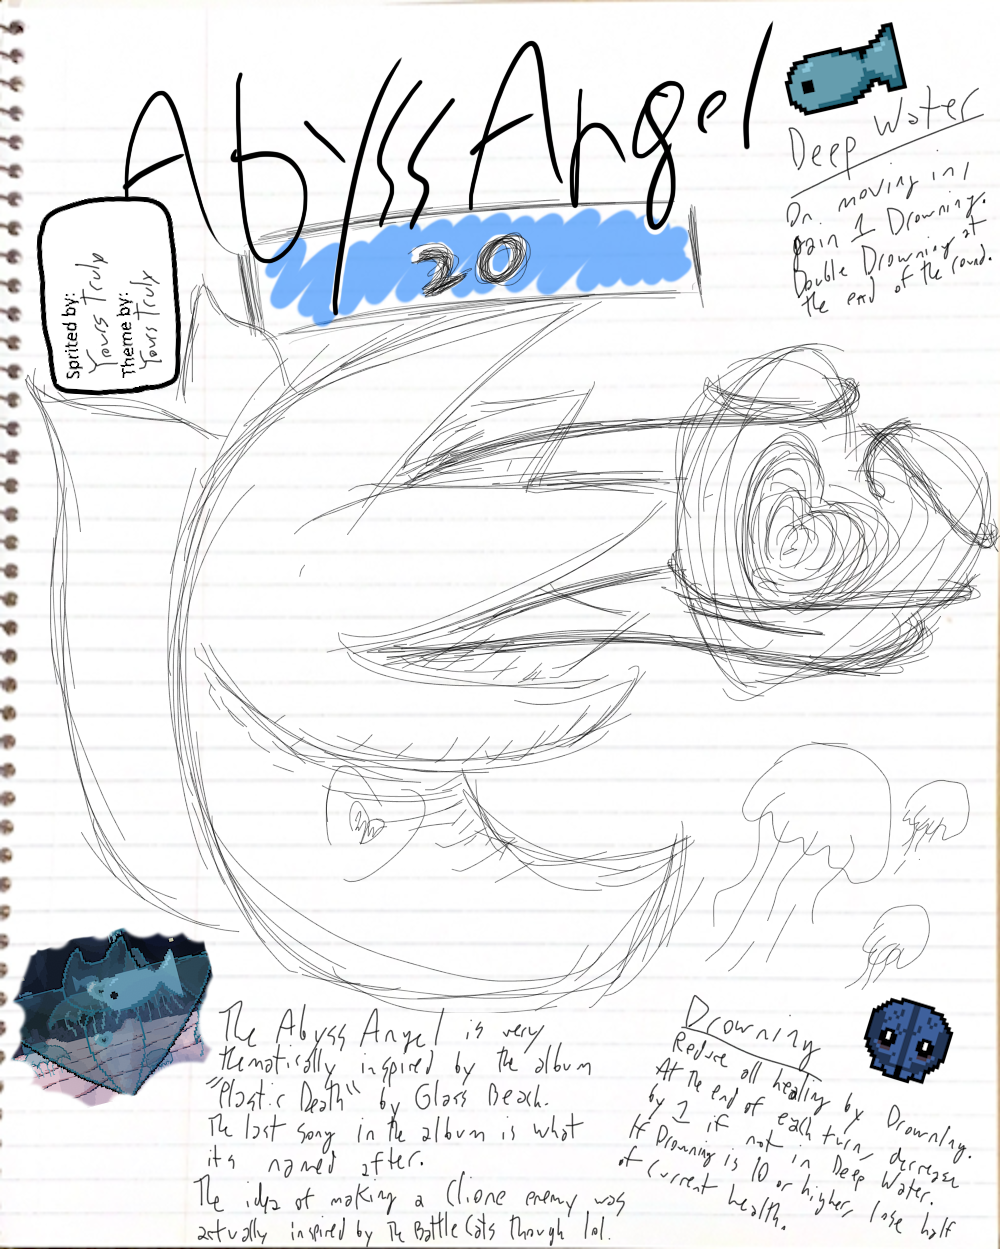 Abyss Angel
20
Sprited by:
Yours Truly
Theme by:
Yours Truly
Deep Water
On moving in,
gain 1 Drowning.
Double Drowning at
the end of the round.
The Abyss Angel is very
thematically inspired by the album
"Plastic Death" by Glass Beach.
The last song in the album is what
its named after.
The idea of making a Clione enemy was
actually inspired by The Battle Cats though lol.
Drowning
Reduce all healing by Drowning.
At the end of each turn, decrease
by 1 if not in Deep Water.
If Drowning is 10 or higher, lose half
of current health.